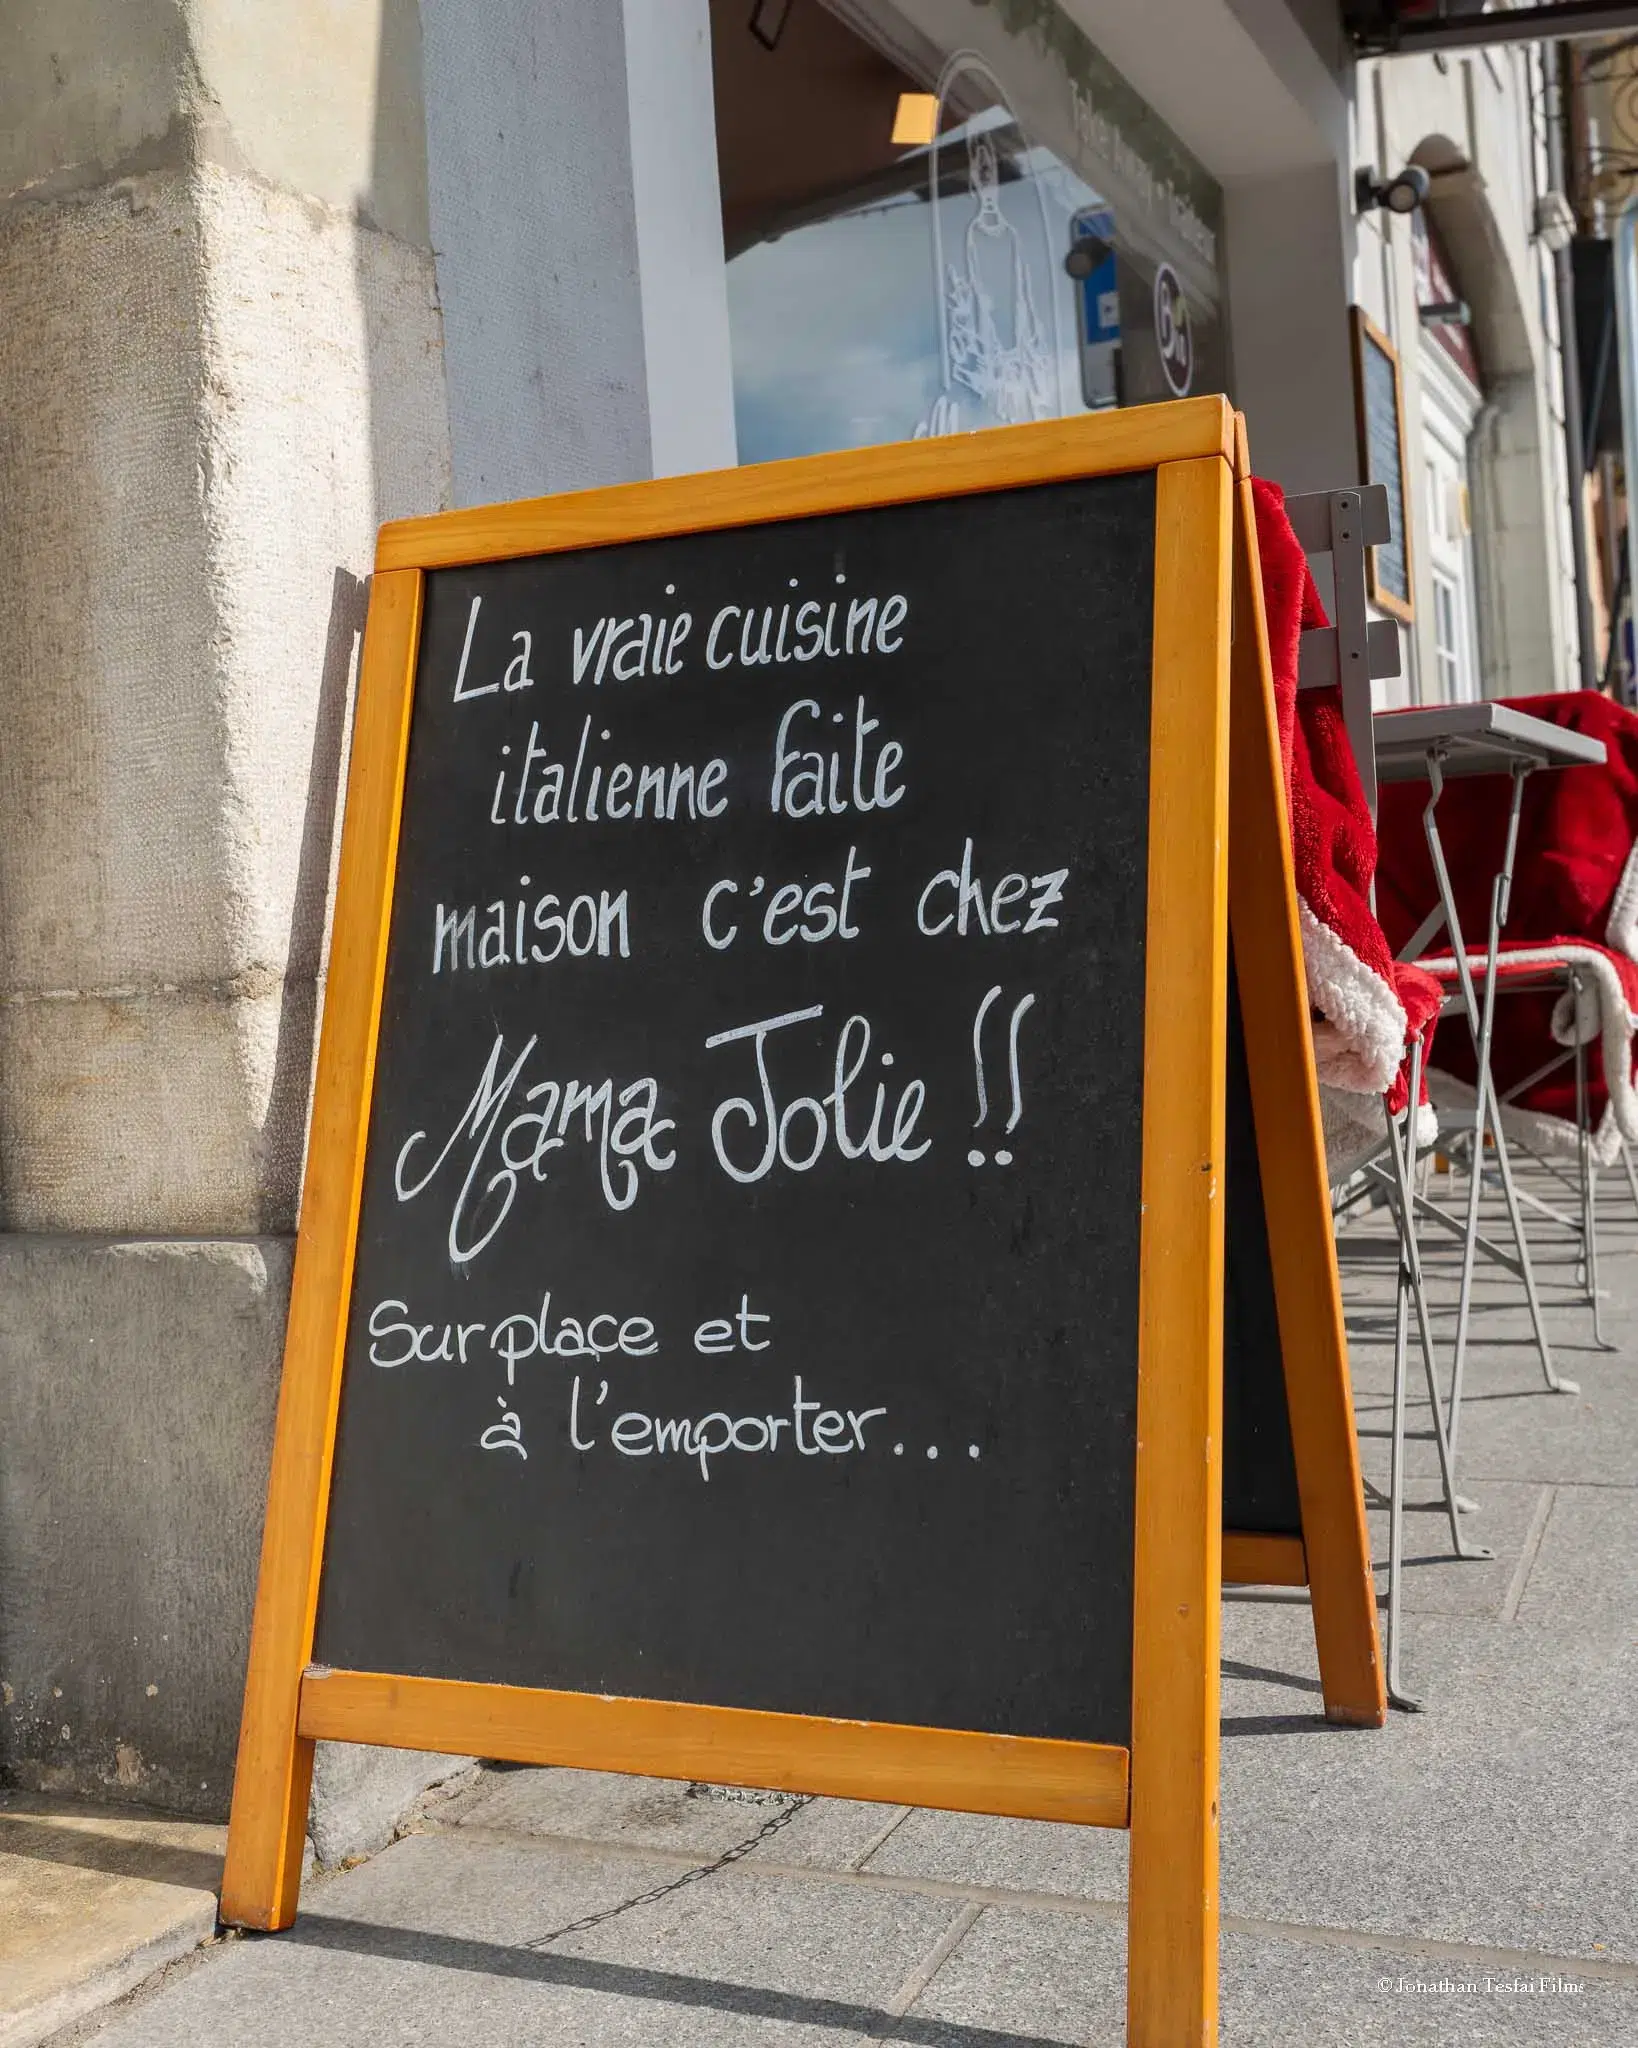 La vraie cuisine
italienne faite
maison c'est chez
Mama Jolie !!
Sur place et
à l'emporter...
©Jonathan Tesfai Films